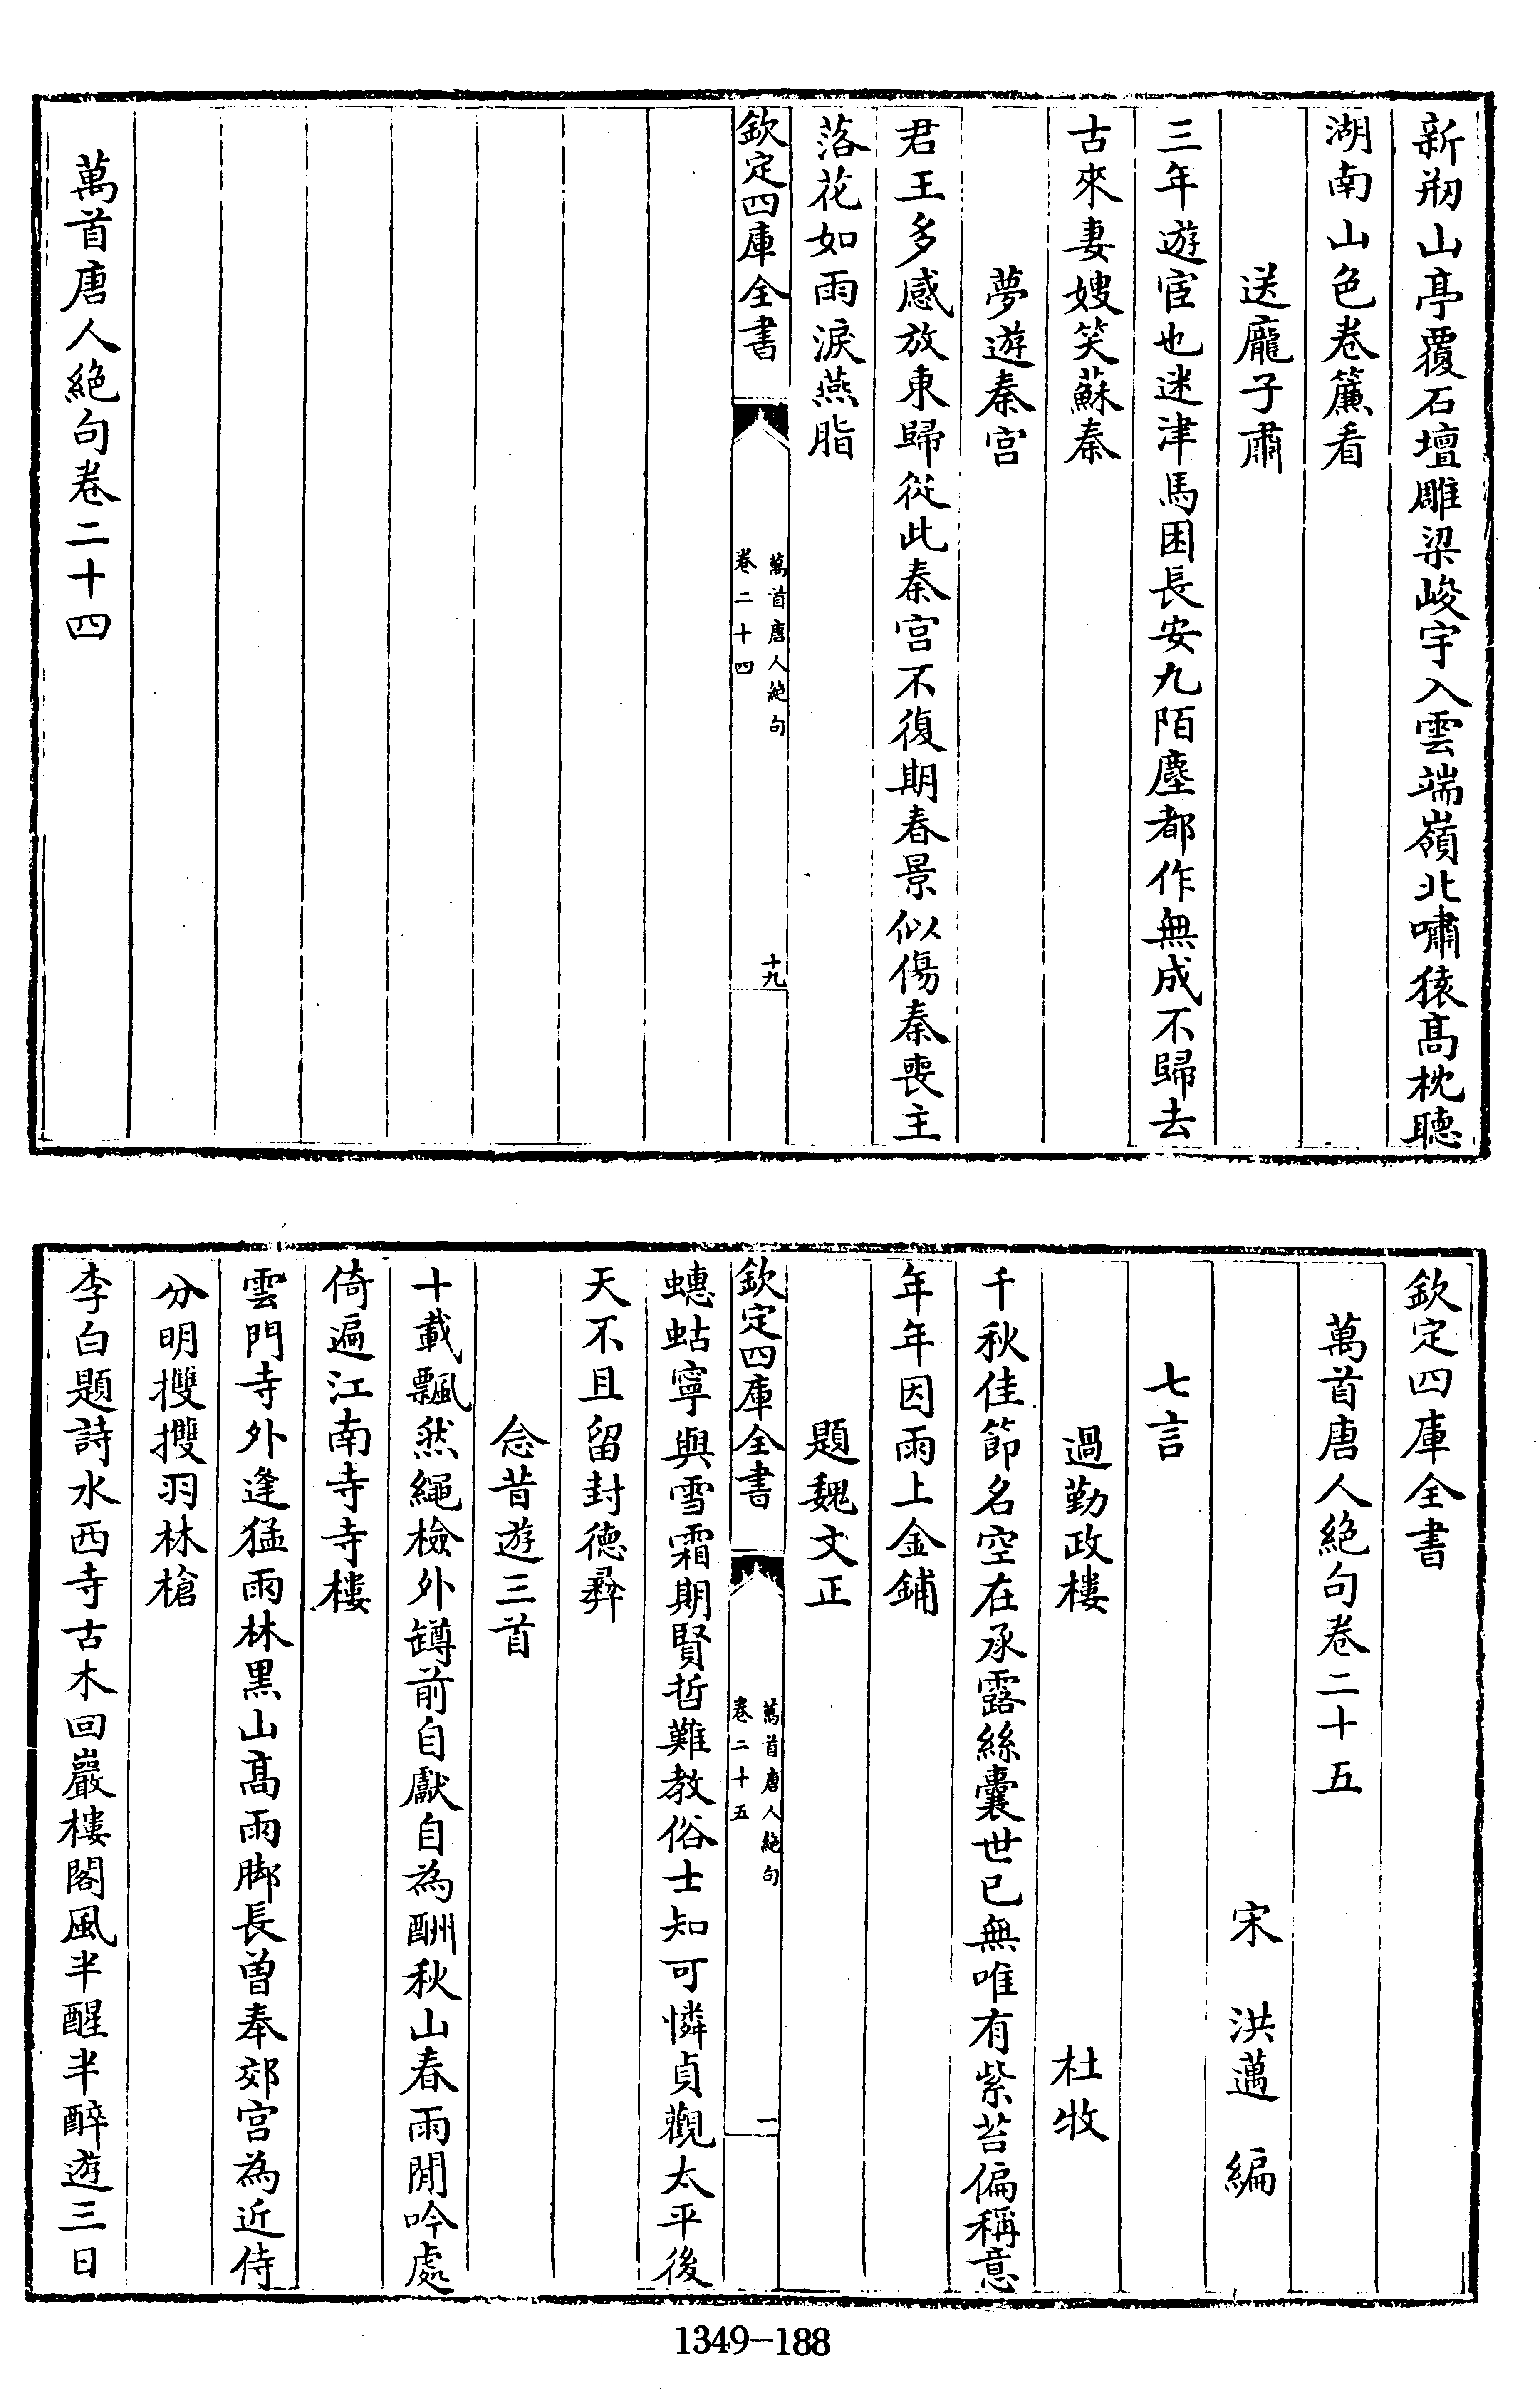 新剏山亭覆石壇雕梁峻宇入雲端嶺北嘯猿髙枕聽
湖南山色卷簾看
送龐子肅
三年遊宦也迷津馬困長安九陌塵都作無成不歸去
古來妻嫂笑蘇秦
夢遊秦宫
君王多感放東歸從此秦宫不復期春景似傷秦喪主
落花如雨淚燕脂
欽定四庫全書
萬首唐人絶句
卷二十四
十九
萬首唐人絶句卷二十四
欽定四庫全書
萬首唐人絶句卷二十五
宋 洪邁 編
七言
過勤政樓 杜牧
千秋佳節名空在承露絲囊世已無唯有紫苔偏稱意
年年因雨上金鋪
題魏文正
欽定四庫全書
萬首唐人絶句
卷二十五
一
蟪蛄寧與雪霜期賢哲難教俗士知可憐貞觀太平後
天不且留封德彞
念昔遊三首
十載飄然繩檢外罇前自獻自為酬秋山春雨閒吟處
倚遍江南寺寺樓
雲門寺外逢猛雨林黒山髙雨脚長曽奉郊宫為近侍
分明㩳㩳羽林槍
李白題詩水西寺古木回巖樓閣風半醒半醉遊三日
1349-188